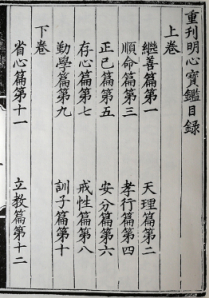 重刊明心寶鑑目録
上卷
繼善篇第一 天理篇第二
順命篇第三 孝行篇第四
正已篇第五 安分篇第六
存心篇第七 戒性篇第八
勤學篇第九 訓子篇第十
下卷
省心篇第十一 立教篇第十二